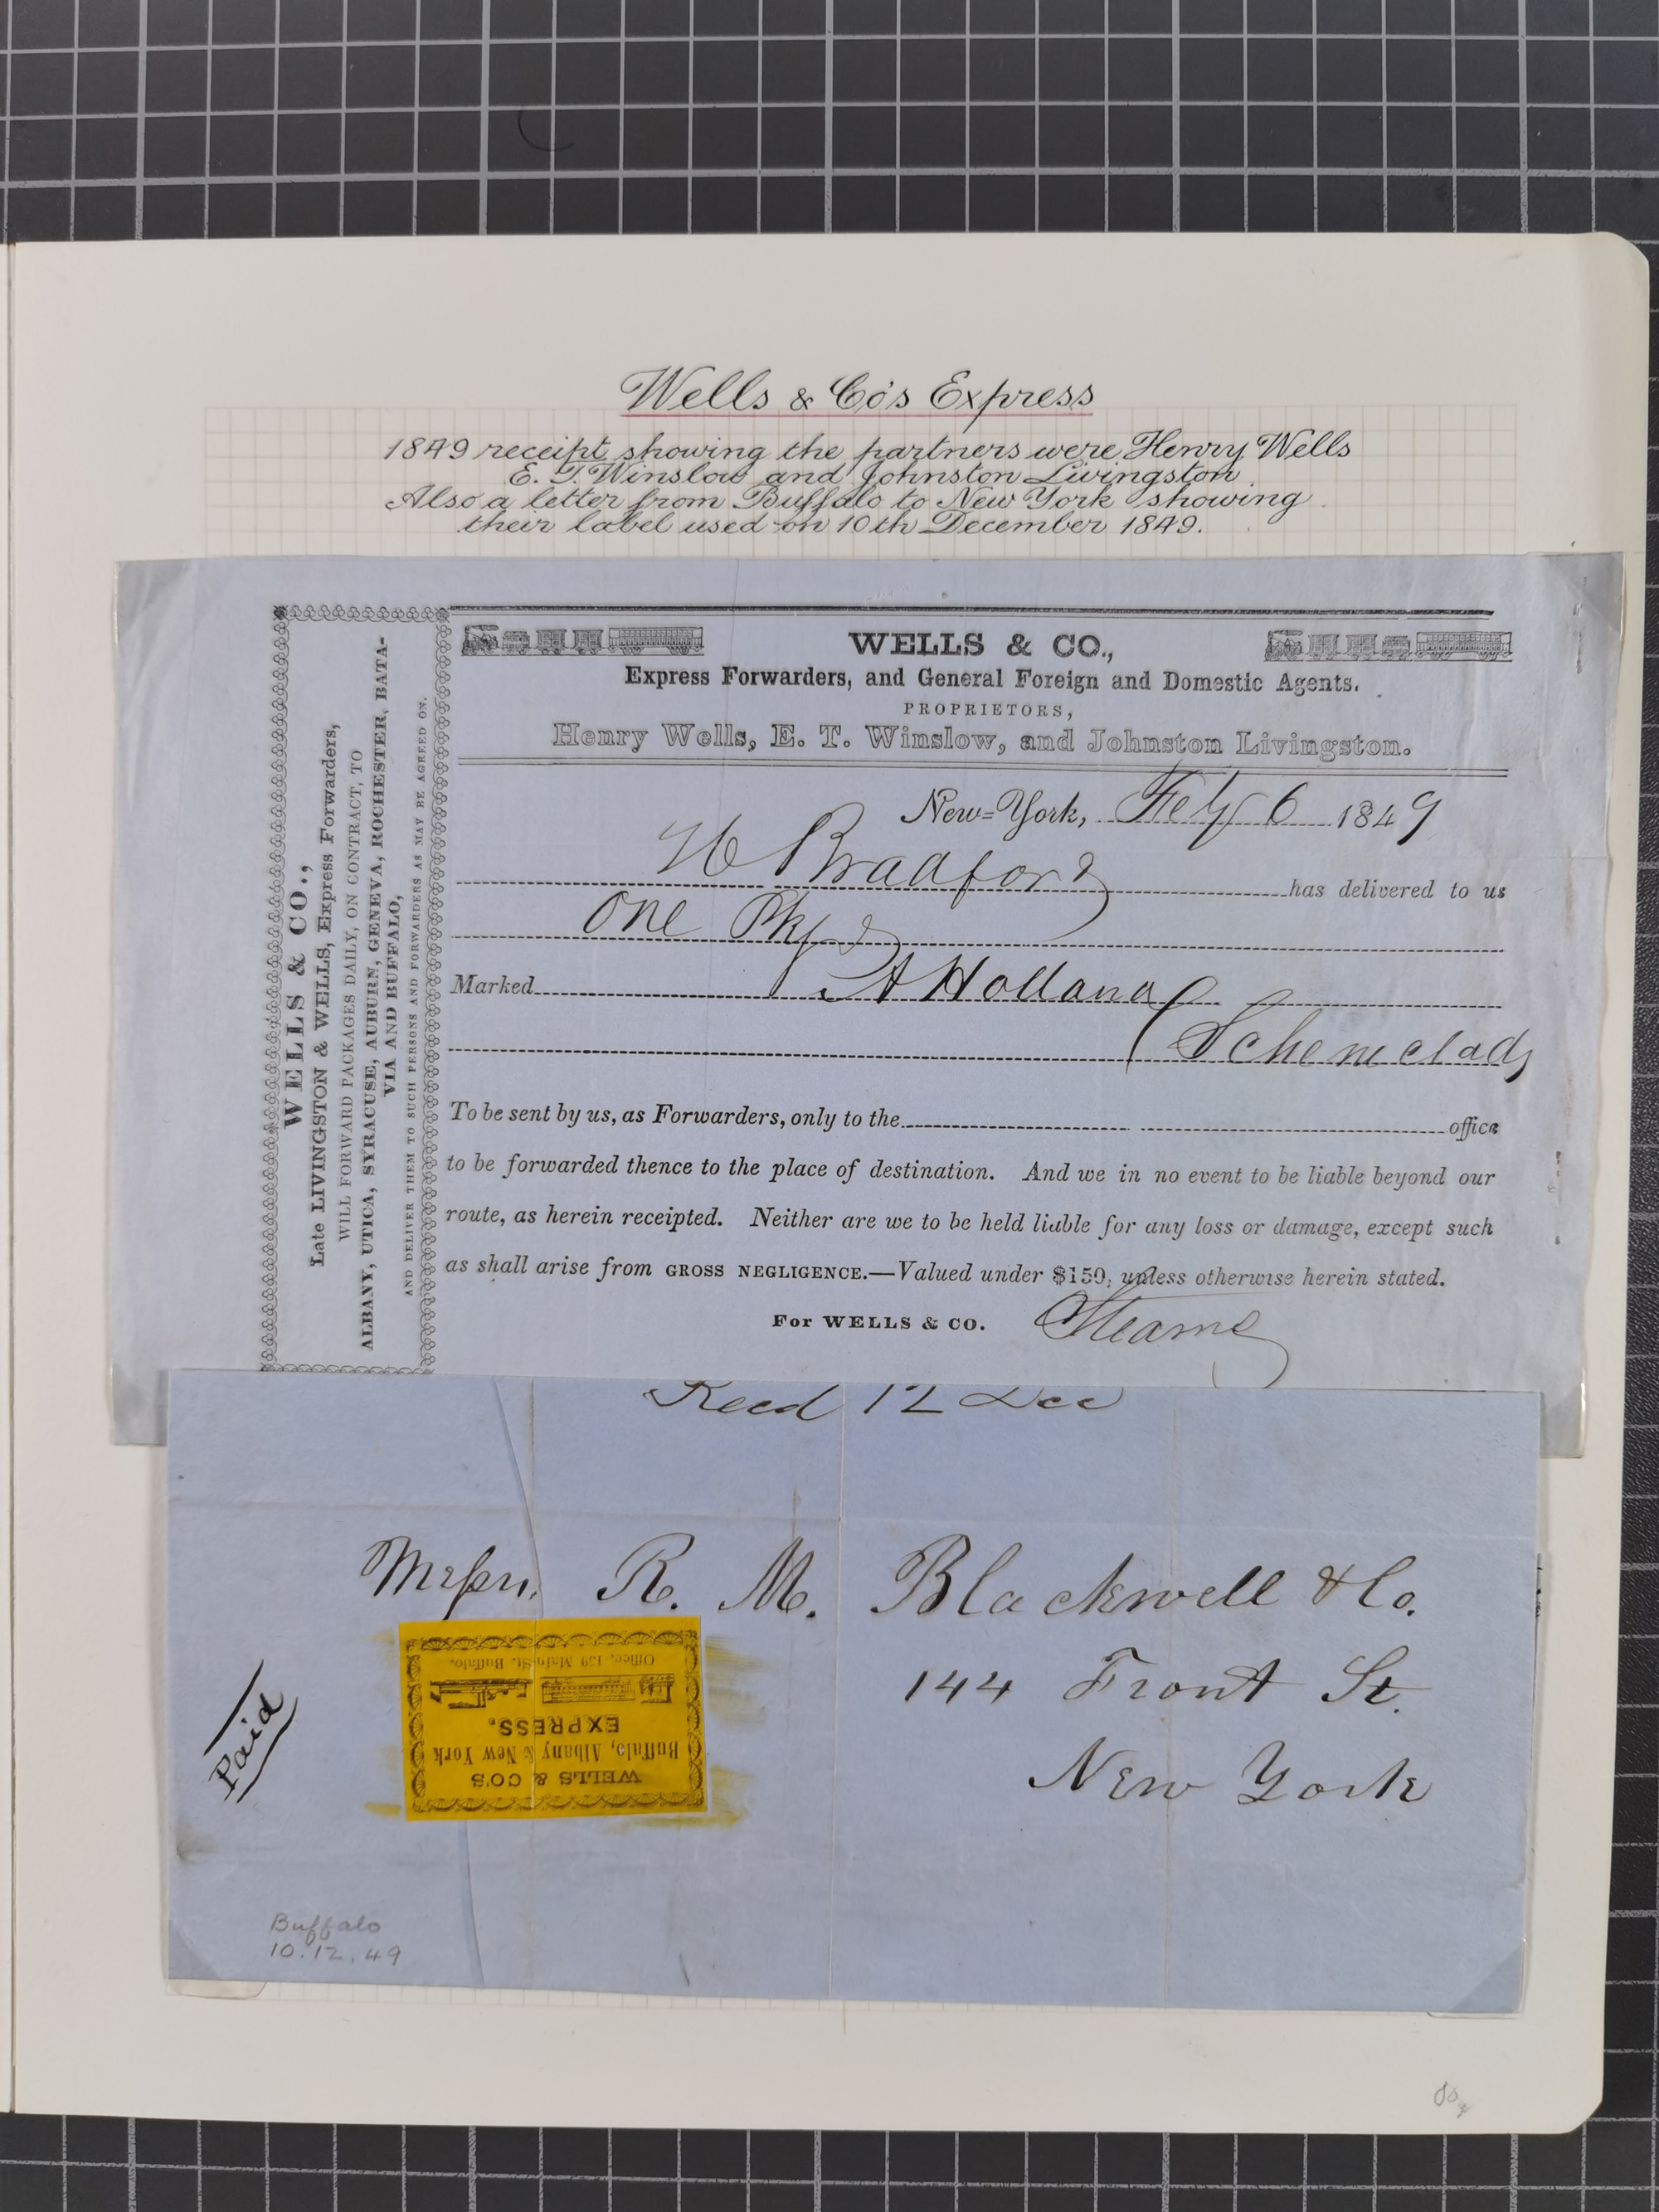 Wells & Co's Express
1849 receipt showing the partners were Henry Wells
E. T. Winslow and Johnston Livingston
Also a letter from Buffalo to New York showing
their label used on 10th December 1849.
WELLS & CO.,
Late LIVINGSTON & WELLS, Express Forwarders,
WILL FORWARD PACKAGES DAILY, ON CONTRACT, TO
ALBANY, UTICA, SYRACUSE, AUBURN, GENEVA, ROCHESTER, BATA-
VIA AND BUFFALO,
AND DELIVER THEM TO SUCH PERSONS AND FORWARDERS AS MAY BE AGREED ON.
WELLS & CO.,
Express Forwarders, and General Foreign and Domestic Agents.
PROPRIETORS,
Henry Wells, E. T. Winslow, and Johnston Livingston.
New=York, Feby 6 1849
Bradford has delivered to us
One Pkge
Marked A Holland
Schenectady
To be sent by us, as Forwarders, only to the office
to be forwarded thence to the place of destination. And we in no event to be liable beyond our
route, as herein receipted. Neither are we to be held liable for any loss or damage, except such
as shall arise from GROSS NEGLIGENCE.—Valued under $150, unless otherwise herein stated.
For WELLS & CO. Stearns
Recd 12 Dec
Messrs. R. M. Blackwell & Co.
144 Front St.
New York
Paid
WELLS & CO'S
Buffalo, Albany & New York
EXPRESS.
Office, 159 Main-St. Buffalo.
Buffalo
10.12.49